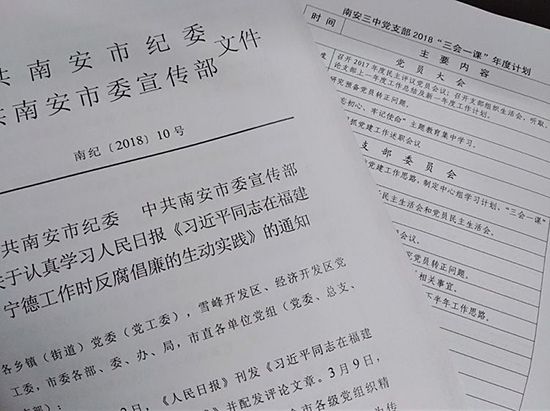 共南安市纪委
共南安市委宣传部
文件
南纪〔2018〕10号
共南安市纪委 中共南安市委宣传部
关于认真学习人民日报《习近平同志在福建
宁德工作时反腐倡廉的生动实践》的通知
各乡镇（街道）党委（党工委），雪峰开发区、经济开发区党
工委，市委各部、委、办、局，市直各单位党组（党委、总支、
《人民日报》刊发《习近平同志在福建
并配发评论文章。3月9日，
全市各级党组织精
南安三中党支部2018“三会一课”年度计划
时间
主要内容
党员大会
召开2017年度民主评议党员会议；召开支部组织生活会，听取、
论支部上一年度工作总结及新一年度工作计划。
研究预备党员转正问题。
忘初心、牢记使命”主题教育集中学习。
抓党建工作述职会议
支部委员会
党建工作思路，制定中心组学习计划、“三会一课”
民主生活会和党员民主生活会。
会议。
转正问题。
相关事宜。
下半年工作思路。